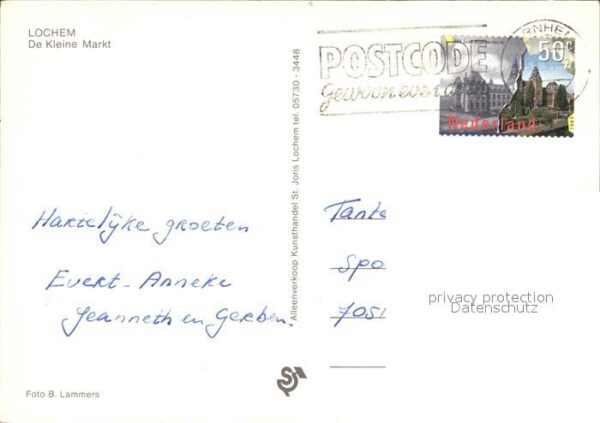 LOCHEM
De Kleine Markt
Hartelijke groeten
Evert - Anneke
Jeanneth en Gerben.
Foto B. Lammers
Alleenverkoop Kunsthandel St. Joris Lochem tel. 05730 - 3448
POSTCODE
gewoon even
RNHE
50c
Nederland
Tante
Spo
7051
privacy protection
Datenschutz